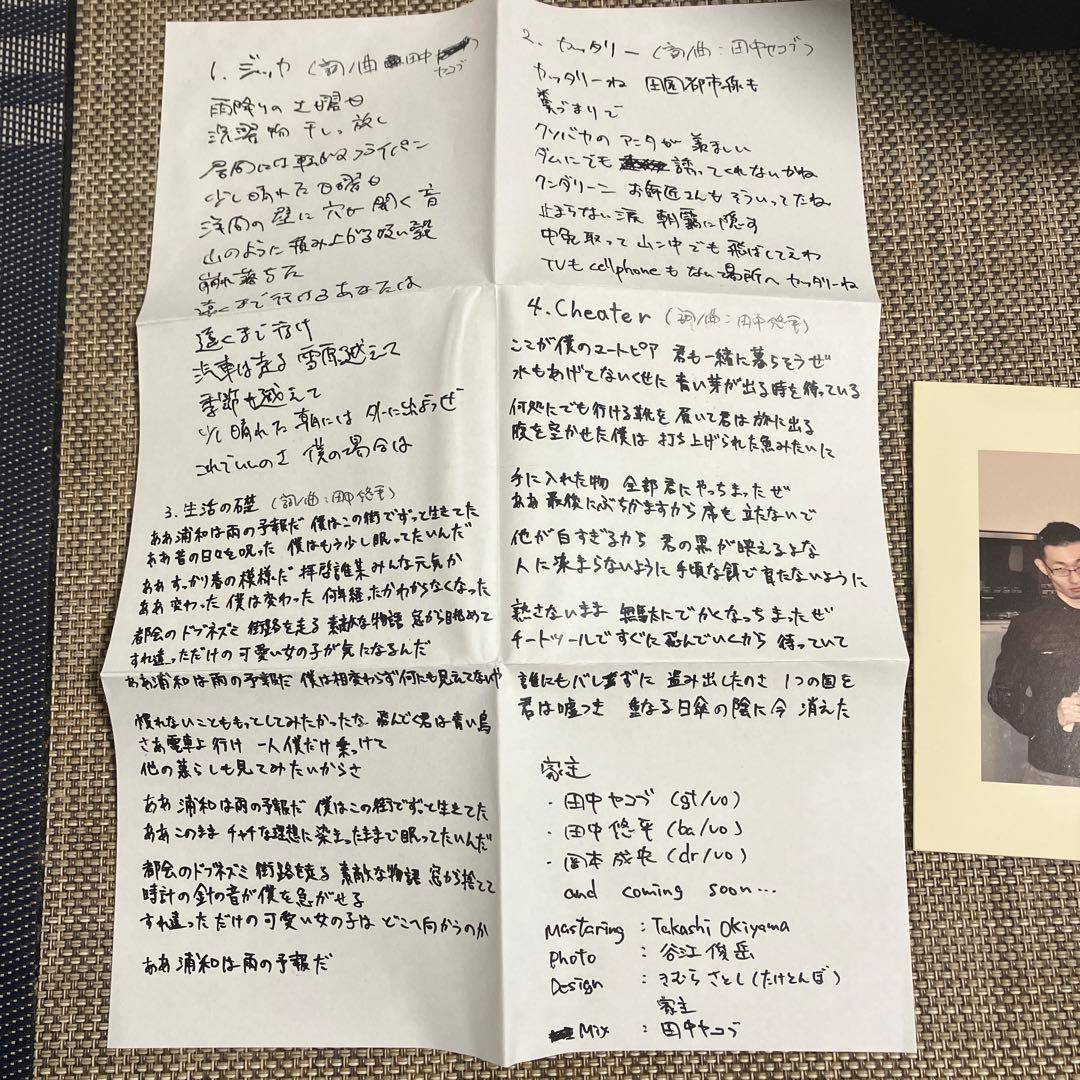 1. ジッカ (詞/曲 田中ヤコブ)
雨降りの土曜日
洗濯物 干しっ放し
居間には転がるフライパン
少し晴れた日曜日
浅間の壁に穴が開く音
山のように積み上がる吸い殻
崩れ落ちた
遠くまで行けるあなたは
遠くまで行け
汽車は走る 雪原越えて
季節も越えて
少し晴れた朝には 外に出ようぜ
これでいいのさ 僕の場合は
2. カッタリー (詞/曲:田中ヤコブ)
カッタリーね 田園都市線も
糞づまりで
クソバカの アニータが 羨ましい
ダムにでも 誘ってくれないかね
クンダリーニ お師匠さんもそういってたね
止まらない涙 朝霧に隠す
中免取って 山ン中でも飛ばしてえわ
TVも cellphoneも ない場所へ カッタリーね
3. 生活の礎 (詞/曲:田中悠平)
ああ浦和は雨の予報だ 僕はこの街でずっと生きてた
ああ昔の日々を呪った 僕はもう少し眠ってたいんだ
ああすっかり春の模様だ 拝啓 誰某みんな元気か
ああ変わった 僕は変わった 何年経ったかわからなくなった
都会のドブネズミ 街路を走る 素敵な物語 窓から眺めて
すれ違っただけの 可愛い女の子が気になるんだ
ああ浦和は雨の予報だ 僕は相変わらず何にも見えてないや
慣れないことももってしてみたかったな 飛んでく君は青い鳥
さあ電車よ 行け 一人僕だけ乗っけて
他の暮らしも見てみたいからさ
ああ 浦和は雨の予報だ 僕はこの街でずっと生きてた
ああこのまま チャチな理想に染まったままで眠ってたいんだ
都会のドブネズミ 街路を走る 素敵な物語 窓から捨てて
時計の針の音が僕を急がせる
すれ違っただけの可愛い女の子は どこへ向かうのか
ああ 浦和は雨の予報だ
4. Cheater (詞/曲:田中悠平)
ここが僕のユートピア 君も一緒に暮らそうぜ
水もあげてないくせに 青い芽が出る時を待っている
何処にでも行ける靴を 履いて君は旅に出る
腹を空かせた僕は 打ち上げられた魚みたいに
手に入れた物 全部君にやっちまったぜ
ああ 最後にぶちかますから 席を立たないで
他が白すぎるから 君の黒が映えるよな
人に染まらないように 手頃な餌で育たないように
熟さないまま 無駄にでかくなっちまったぜ
チートツールですぐに飛んでいくから 待っていて
誰にもバレまずに 盗み出したのさ 1つの国を
君は嘘つき 重なる日傘の陰に今 消えた
家主
・田中ヤコブ (gt/vo)
・田中悠平 (ba/vo)
・岡本成央 (dr/vo)
and coming soon...
Mastaring : Takashi Okiyama
Photo : 谷江俊岳
Design : きむらさとし(たけとんぼ)
家主
Mix : 田中ヤコブ